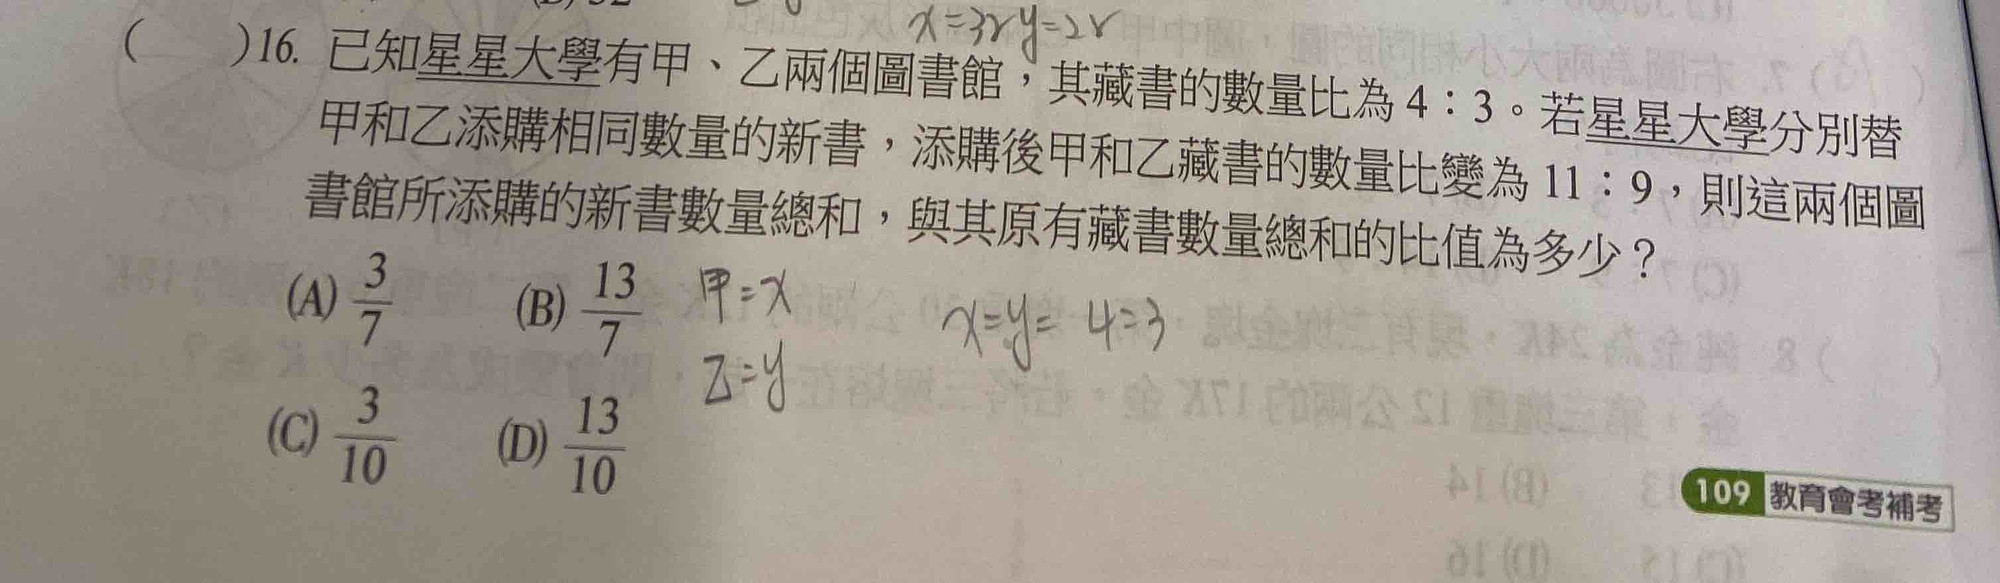 x=3r y=2r
(　　)16. 已知星星大學有甲、乙兩個圖書館，其藏書的數量比為 4：3。若星星大學分別替
甲和乙添購相同數量的新書，添購後甲和乙藏書的數量比變為 11：9，則這兩個圖
書館所添購的新書數量總和，與其原有藏書數量總和的比值為多少？
(A) 3/7 (B) 13/7
甲=x
x=y= 4=3
乙=y
(C) 3/10 (D) 13/10
109 教育會考補考